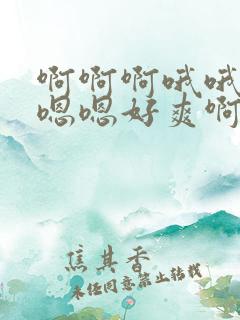 啊啊啊哦哦
嗯嗯好爽啊
焦其香
未经同意禁止转载